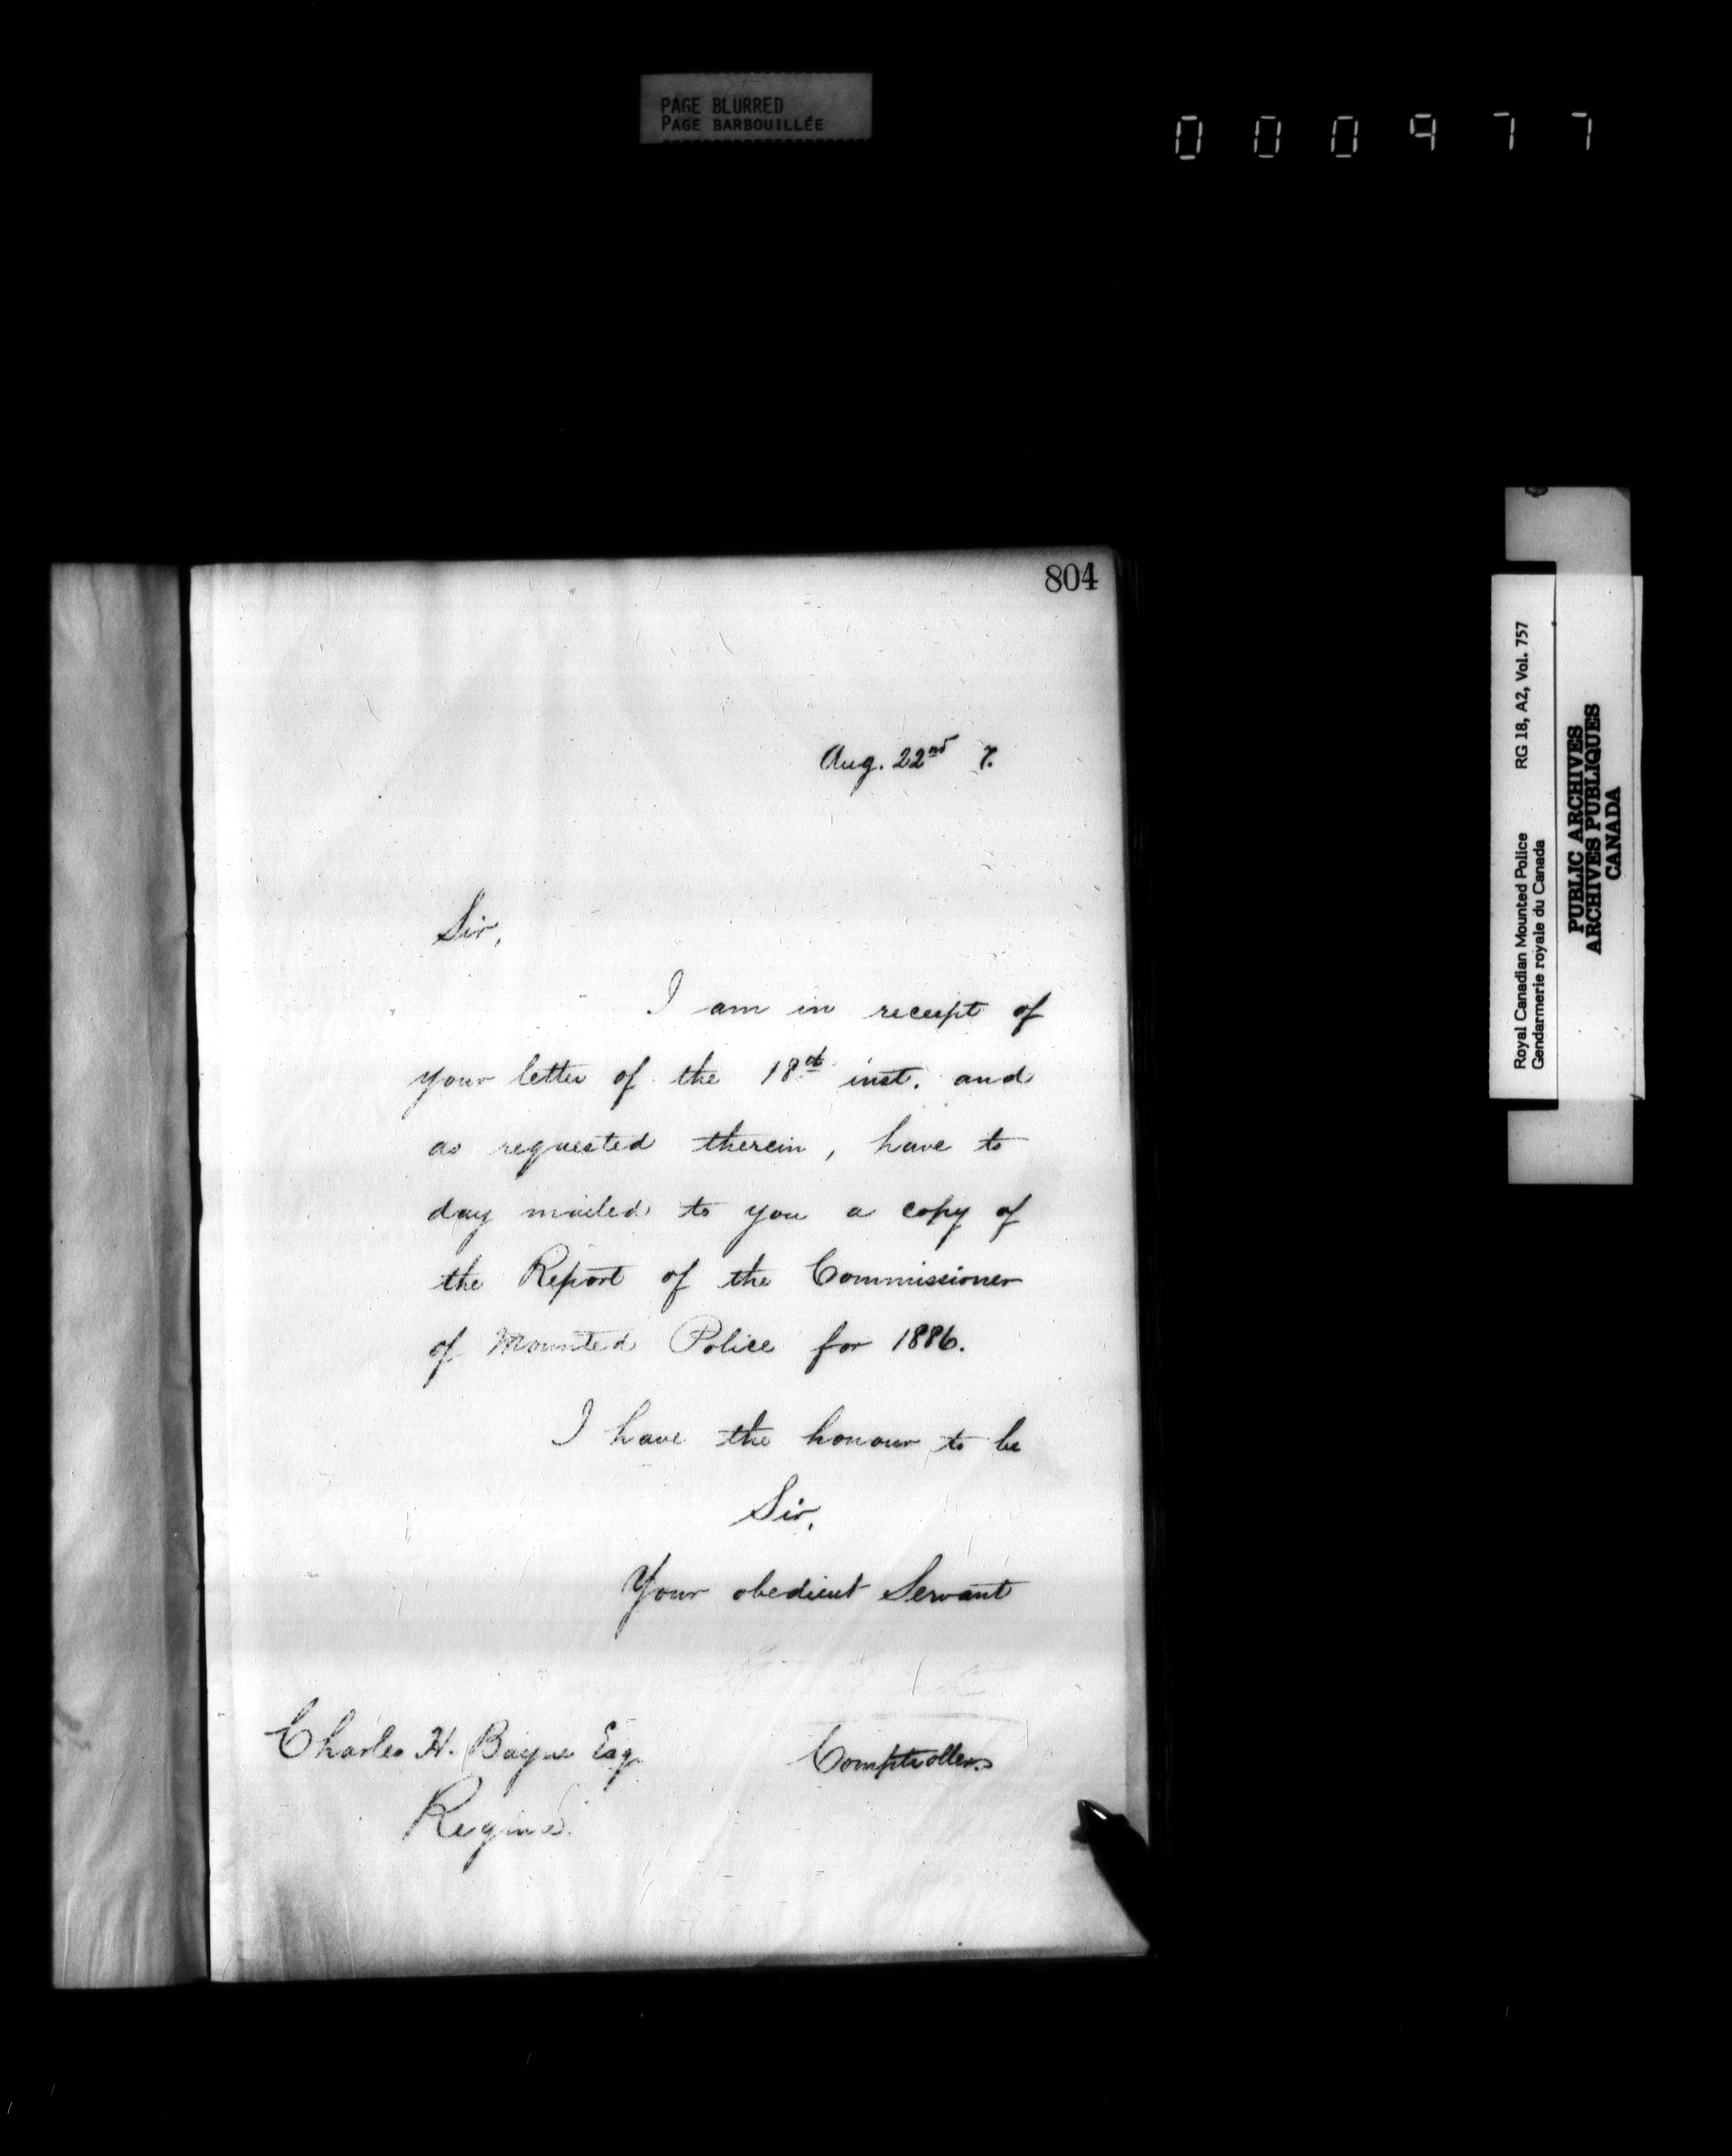 PAGE BLURRED
PAGE BARBOUILLÉE
000977
804
Aug. 22nd 7.
Sir,
I am in receipt of
your letter of the 18th inst. and
as requested therein, have to
day mailed to you a copy of
the Report of the Commissioner
of Mounted Police for 1886.
I have the honour to be
Sir,
Your obedient Servant
Charles H. Bayne Esq
Comptroller.
Regina.
Royal Canadian Mounted Police RG 18, A2, Vol. 757
Gendarmerie royale du Canada
PUBLIC ARCHIVES
ARCHIVES PUBLIQUES
CANADA